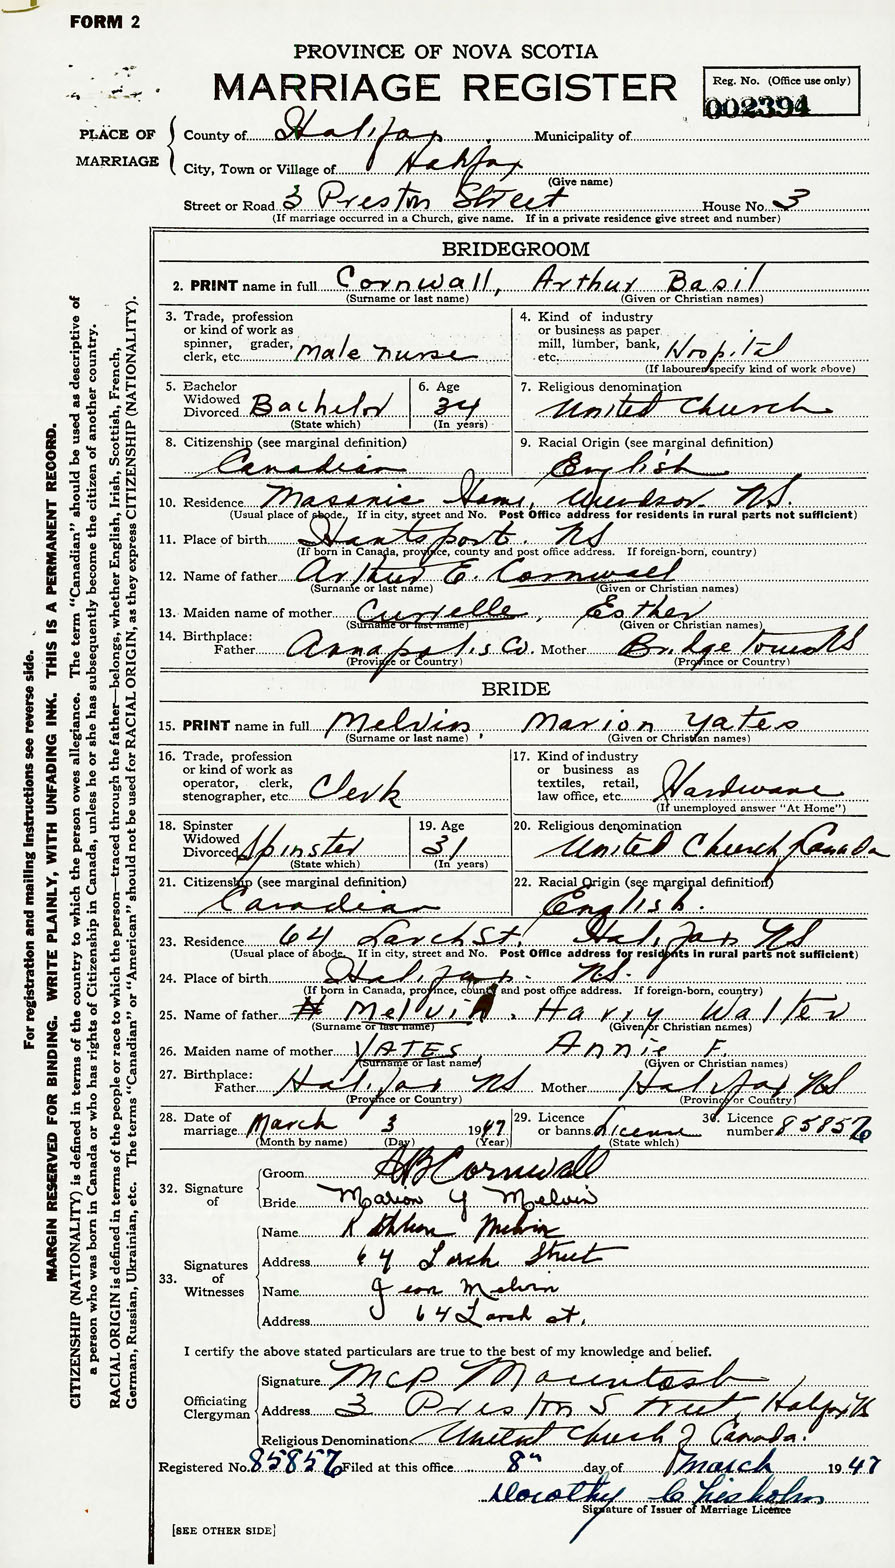 FORM 2
PROVINCE OF NOVA SCOTIA
MARRIAGE REGISTER
Reg. No. (Office use only)
002394
PLACE OF MARRIAGE
County of Halifax Municipality of
City, Town or Village of Halifax
(Give name)
Street or Road 3 Preston Street House No. 3
(If marriage occurred in a Church, give name. If in a private residence give street and number)
BRIDEGROOM
2. PRINT name in full Cornwall, Arthur Basil
(Surname or last name) (Given or Christian names)
3. Trade, profession or kind of work as spinner, grader, clerk, etc. Male nurse
4. Kind of industry or business as paper mill, lumber, bank, etc. Hospital
(If labourer specify kind of work above)
5. Bachelor Widowed Divorced Bachelor
(State which)
6. Age 34
(In years)
7. Religious denomination United Church
8. Citizenship (see marginal definition) Canadian
9. Racial Origin (see marginal definition) English
10. Residence Masonic Home, Windsor NS.
(Usual place of abode. If in city, street and No. Post Office address for residents in rural parts not sufficient)
11. Place of birth Hantsport. NS
(If born in Canada, province, county and post office address. If foreign-born, country)
12. Name of father Arthur E. Cornwall
(Surname or last name) (Given or Christian names)
13. Maiden name of mother Esther
(Surname or last name) (Given or Christian names)
14. Birthplace: Father Annapolis Co. Mother Bridgetown NS
(Province or Country) (Province or Country)
BRIDE
15. PRINT name in full Melvin, Marion Yates
(Surname or last name) (Given or Christian names)
16. Trade, profession or kind of work as operator, clerk, stenographer, etc. Clerk
17. Kind of industry or business as textiles, retail, law office, etc. Hardware
(If unemployed answer "At Home")
18. Spinster Widowed Divorced Spinster
(State which)
19. Age 31
(In years)
20. Religious denomination United Church of Canada
21. Citizenship (see marginal definition) Canadian
22. Racial Origin (see marginal definition) English.
23. Residence 64 Larch St. Halifax NS
(Usual place of abode. If in city, street and No. Post Office address for residents in rural parts not sufficient)
24. Place of birth Halifax. NS.
(If born in Canada, province, county and post office address. If foreign-born, country)
25. Name of father Melvin. Harry Walter
(Surname or last name) (Given or Christian names)
26. Maiden name of mother YATES Annie F.
(Surname or last name) (Given or Christian names)
27. Birthplace: Father Halifax NS Mother Halifax NS
(Province or Country) (Province or Country)
28. Date of marriage March 3 1947
(Month by name) (Day) (Year)
29. Licence or banns License
(State which)
30. Licence number 85856
32. Signature of
Groom AB Cornwall
Bride Marion Y Melvin
33. Signatures of Witnesses
Name Kathleen Melvin
Address 64 Larch Street
Name Jean Melvin
Address 64 Larch st.
I certify the above stated particulars are true to the best of my knowledge and belief.
Officiating Clergyman
Signature Macintosh
Address 3 Preston Street, Halifax NS
Religious Denomination United Church of Canada.
Registered No. 85856 Filed at this office 8th day of March 1947
Dorothy Chisholm
Signature of Issuer of Marriage Licence
[SEE OTHER SIDE]
For registration and mailing instructions see reverse side.
MARGIN RESERVED FOR BINDING. WRITE PLAINLY, WITH UNFADING INK. THIS IS A PERMANENT RECORD.
CITIZENSHIP (NATIONALITY) is defined in terms of the country to which the person owes allegiance. The term "Canadian" should be used as descriptive of
a person who was born in Canada or who has rights of Citizenship in Canada, unless he or she has subsequently become the citizen of another country.
RACIAL ORIGIN is defined in terms of the people or race to which the person—traced through the father—belongs, whether English, Irish, Scottish, French,
German, Russian, Ukrainian, etc. The terms "Canadian" or "American" should not be used for RACIAL ORIGIN, as they express CITIZENSHIP (NATIONALITY).